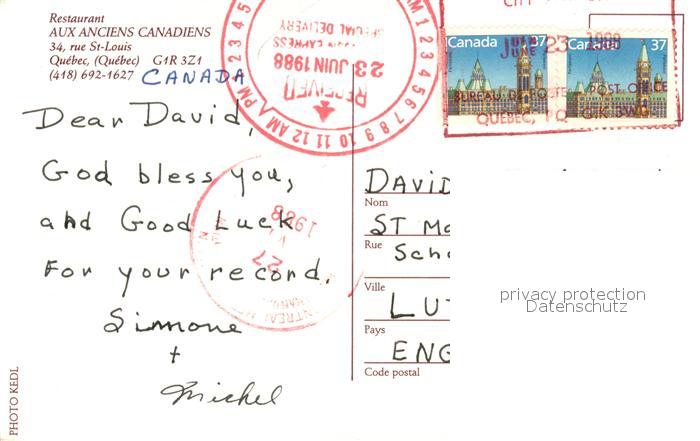 Restaurant
AUX ANCIENS CANADIENS
34, rue St-Louis
Québec, (Québec) G1R 3Z1
(418) 692-1627 CANADA
Dear David,
God bless you,
and Good Luck
For your record.
Simone
+
Michel
PHOTO KEDL
RECEIVED
23 JUIN 1988
SPECIAL DELIVERY
PM 2 3 4 5
AM 1 2 3 4 5 6 7 8 9 10 11 12 AM
27
1988
Canada 37
Canada 37
JUNE 23
BUREAU DE POSTE POST OFFICE
QUEBEC, PQ
DAVID
Nom
ST
Rue
Ville
LU
Pays
ENG
Code postal
privacy protection
Datenschutz